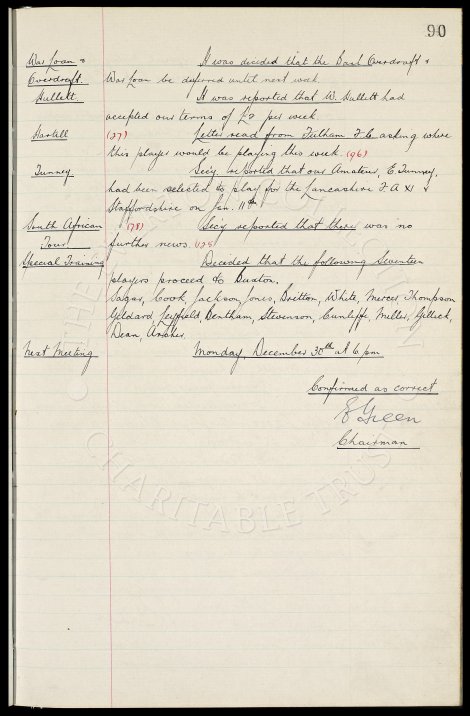 90
War Loan & It was decided that the Bank Overdraft &
Overdraft. War Loan be deferred until next week.
Gullett. It was reported that W. Gullett had
accepted our terms of £2 per week.
Hartill (27) Letter read from Fulham F.C. asking where
this player would be playing this week. (96)
Tunney Secy. reported that our Amateur, E. Tunney,
had been selected to play for the Lancashire F.A. XI v
Staffordshire on Jan. 11th
South African (78) Secy reported that there was no
Tour further news. (125)
Special Training Decided that the following Seventeen
players proceed to Buxton.
Sagar, Cook, Jackson, Jones, Britton, White, Mercer, Thompson
Geldard, Leyfield, Bentham, Stevenson, Cunliffe, Miller, Gillick,
Dean, Archer.
Next Meeting Monday, December 30th at 6 pm
Confirmed as correct
E Green
Chairman
CHARITABLE TRUST